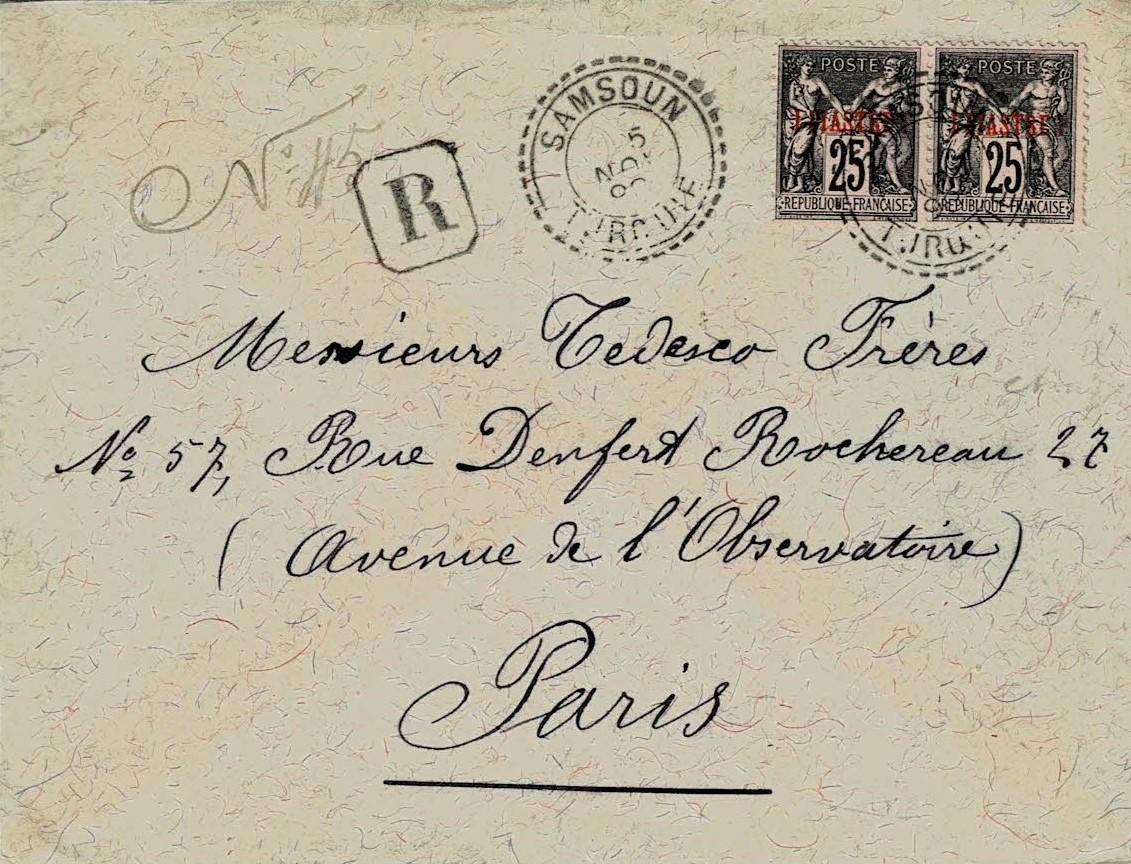 POSTE POSTE
1 PIASTRE 1 PIASTRE
25 25
REPUBLIQUE FRANÇAISE REPUBLIQUE FRANÇAISE
SAMSOUN
5
TURQUIE
TURQUIE
No 45
R
Messieurs Tedesco Frères
No 57, Rue Denfert Rochereau 27
(Avenue de l'Observatoire)
Paris